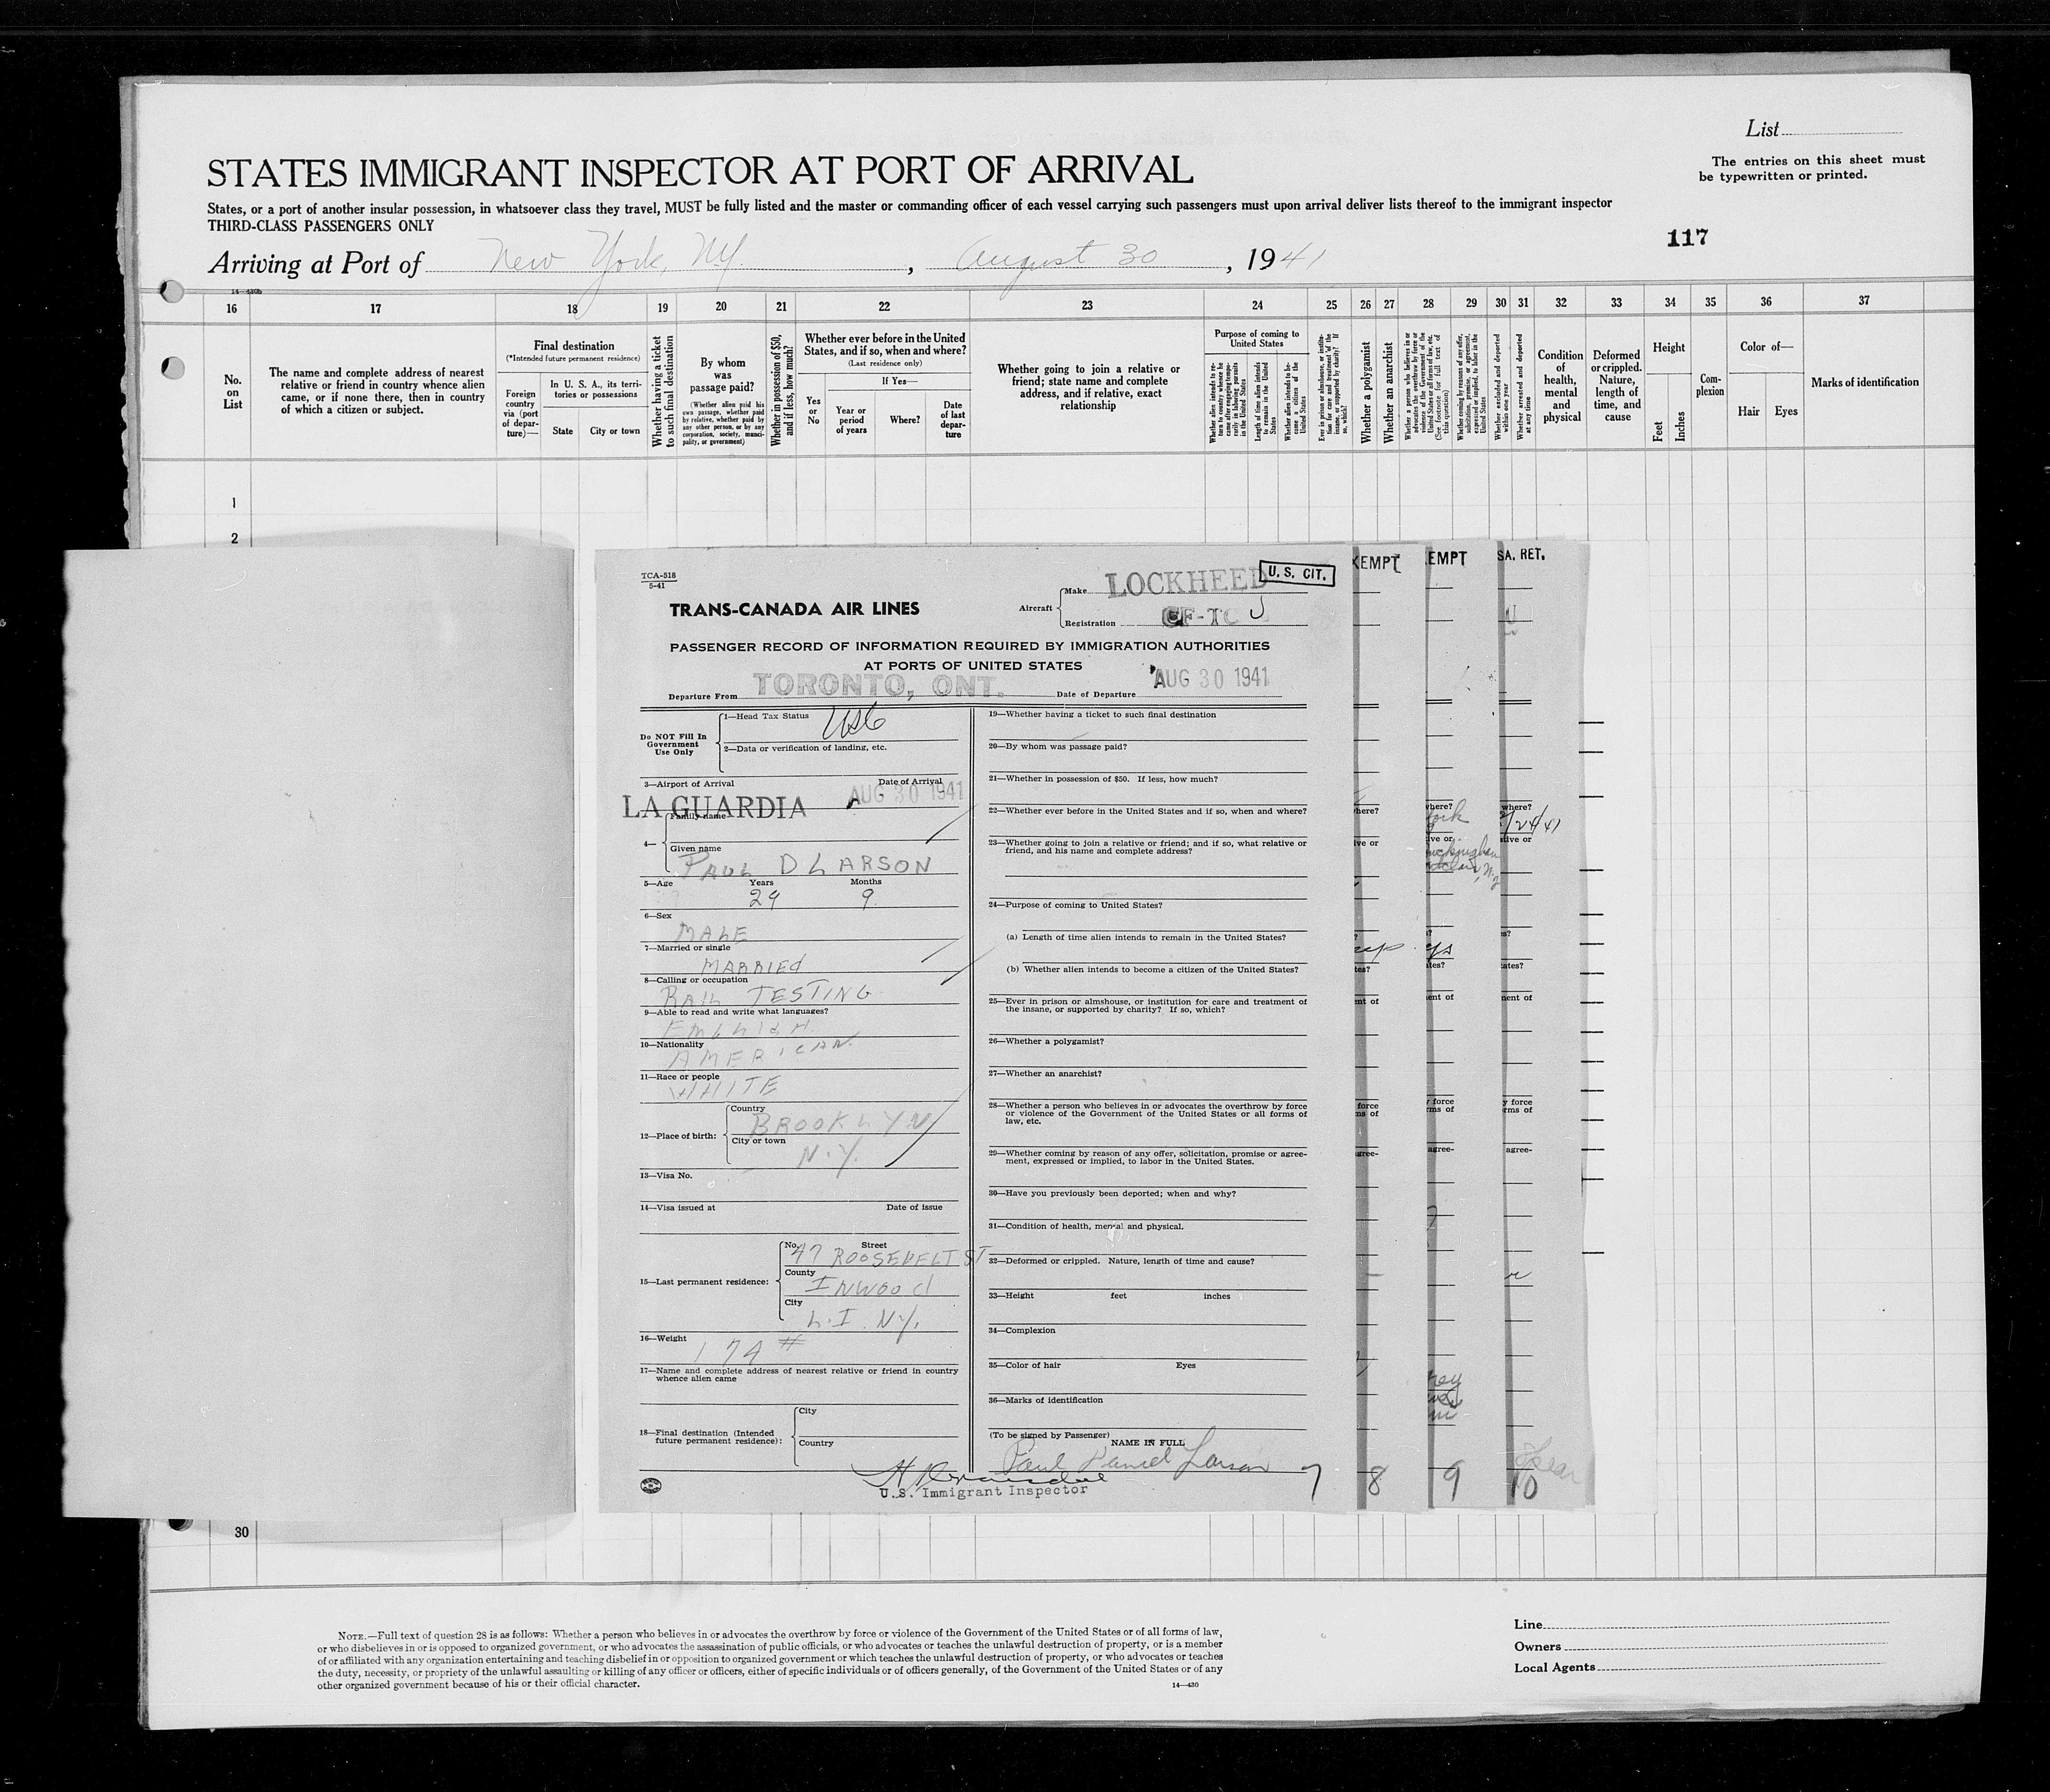 List
The entries on this sheet must
be typewritten or printed.
STATES IMMIGRANT INSPECTOR AT PORT OF ARRIVAL
States, or a port of another insular possession, in whatsoever class they travel, MUST be fully listed and the master or commanding officer of each vessel carrying such passengers must upon arrival deliver lists thereof to the immigrant inspector
THIRD-CLASS PASSENGERS ONLY
117
Arriving at Port of New York, N.Y., August 30, 1941
14—430b
16 17 18 19 20 21 22 23 24 25 26 27 28 29 30 31 32 33 34 35 36 37
No.
on
List
The name and complete address of nearest
relative or friend in country whence alien
came, or if none there, then in country
of which a citizen or subject.
Final destination
(*Intended future permanent residence)
Foreign
country
via (port
of depar-
ture)—
In U. S. A., its terri-
tories or possessions
State City or town
Whether having a ticket
to such final destination
By whom
was
passage paid?
(Whether alien paid his
own passage, whether paid
by relative, whether paid by
any other person, or by any
corporation, society, munici-
pality, or government)
Whether in possession of $50,
and if less, how much?
Whether ever before in the United
States, and if so, when and where?
(Last residence only)
If Yes—
Yes
or
No
Year or
period
of years
Where?
Date
of last
depar-
ture
Whether going to join a relative or
friend; state name and complete
address, and if relative, exact
relationship
Purpose of coming to
United States
Whether alien intends to re-
turn to country whence he
came after engaging tempo-
rarily in laboring pursuits
in the United States
Length of time alien intends
to remain in the United
States
Whether alien intends to be-
come a citizen of the
United States
Ever in prison or almshouse, or institu-
tion for care and treatment of the
insane, or supported by charity? If
so, which?
Whether a polygamist
Whether an anarchist
Whether a person who believes in or
advocates the overthrow by force or
violence of the Government of the
United States or all forms of law, etc.
(See footnote for full text of
this question)
Whether coming by reasons of any offer,
solicitation, promise, or agreement,
expressed or implied, to labor in the
United States
Whether excluded and deported
within one year
Whether arrested and deported
at any time
Condition
of
health,
mental
and
physical
Deformed
or crippled.
Nature,
length of
time, and
cause
Height
Feet
Inches
Com-
plexion
Color of—
Hair Eyes
Marks of identification
1
2
30
TCA-518
5-41
TRANS-CANADA AIR LINES
Aircraft
Make LOCKHEED
U. S. CIT.
Registration CF-TC J
PASSENGER RECORD OF INFORMATION REQUIRED BY IMMIGRATION AUTHORITIES
AT PORTS OF UNITED STATES
Departure From TORONTO, ONT. Date of Departure AUG 30 1941
Do NOT Fill In
Government
Use Only
1—Head Tax Status USC
2—Data or verification of landing, etc.
3—Airport of Arrival Date of Arrival
LA GUARDIA AUG 30 1941
4—
Family name
Given name
PAUL D LARSON
5—Age Years Months
29 9
6—Sex
MALE
7—Married or single
MARRIED
8—Calling or occupation
RAIL TESTING
9—Able to read and write what languages?
ENGLISH
10—Nationality
AMERICAN
11—Race or people
WHITE
12—Place of birth:
Country
BROOKLYN
City or town
N.Y.
13—Visa No.
14—Visa issued at Date of issue
15—Last permanent residence:
No. Street
47 ROOSEVELT ST
County
INWOOD
City
L.I. N.Y.
16—Weight
174 #
17—Name and complete address of nearest relative or friend in country
whence alien came
18—Final destination (Intended
future permanent residence):
City
Country
19—Whether having a ticket to such final destination
20—By whom was passage paid?
21—Whether in possession of $50. If less, how much?
22—Whether ever before in the United States and if so, when and where?
23—Whether going to join a relative or friend; and if so, what relative or
friend, and his name and complete address?
24—Purpose of coming to United States?
(a) Length of time alien intends to remain in the United States?
(b) Whether alien intends to become a citizen of the United States?
25—Ever in prison or almshouse, or institution for care and treatment of
the insane, or supported by charity? If so, which?
26—Whether a polygamist?
27—Whether an anarchist?
28—Whether a person who believes in or advocates the overthrow by force
or violence of the Government of the United States or all forms of
law, etc.
29—Whether coming by reason of any offer, solicitation, promise or agree-
ment, expressed or implied, to labor in the United States.
30—Have you previously been deported; when and why?
31—Condition of health, mental and physical.
32—Deformed or crippled. Nature, length of time and cause?
33—Height feet inches
34—Complexion
35—Color of hair Eyes
36—Marks of identification
(To be signed by Passenger)
NAME IN FULL
Paul Daniel Larson
U.S. Immigrant Inspector
7 8 9 10
XEMPT
EMPT
SA. RET.
NOTE.—Full text of question 28 is as follows: Whether a person who believes in or advocates the overthrow by force or violence of the Government of the United States or of all forms of law,
or who disbelieves in or is opposed to organized government, or who advocates the assassination of public officials, or who advocates or teaches the unlawful destruction of property, or is a member
of or affiliated with any organization entertaining and teaching disbelief in or opposition to organized government or which teaches the unlawful destruction of property, or who advocates or teaches
the duty, necessity, or propriety of the unlawful assaulting or killing of any officer or officers, either of specific individuals or of officers generally, of the Government of the United States or of any
other organized government because of his or their official character.
14—430
Line
Owners
Local Agents